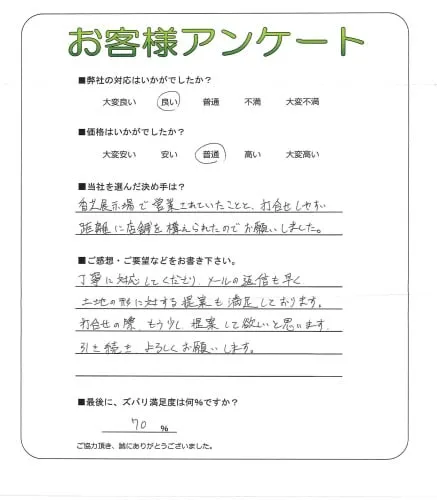 お客様アンケート
■弊社の対応はいかがでしたか？
大変良い 良い 普通 不満 大変不満
■価格はいかがでしたか？
大変安い 安い 普通 高い 大変高い
■当社を選んだ決め手は？
自芝展示場で営業されていたことと、打合せしやすい
距離に店舗を構えられたのでお願いしました。
■ご感想・ご要望などをお書き下さい。
丁寧に対応してくださり、メールの返信も早く
土地の形に対する提案も満足しております。
打合せの際、もう少し提案して欲しいと思います。
引き続き よろしくお願いします。
■最後に、ズバリ満足度は何％ですか？
70 ％
ご協力頂き、誠にありがとうございました。